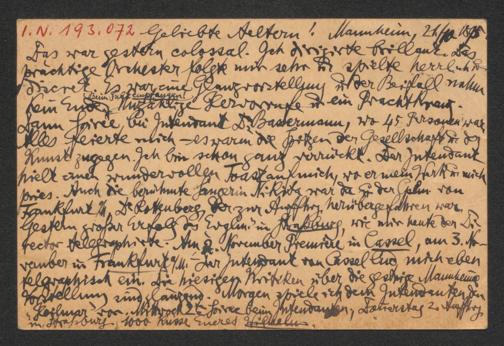 I. N. 193.072 Geliebte Aeltern! Mannheim, 21/10 1895
Das war gestern colossal. Ich dirigirte brillant. Das
prächtige Orchester folgte mir sehr & spielte herrlich
discret. Es war eine Glanzvorstellung & der Beifall nahm
kein Ende. Unzählige Hervorrufe & ein Prachtkranz.
Dann Soirée bei Intendant Dr Bassermann, wo 45 Personen war
Alles feierte mich – es waren die Spitzen der Gesellschaft & der
Kunst zugegen. Ich bin schon ganz verrückt. Der Intendant
hielt einen wundervollen Toast auf mich, wo er mein Werk & mich
pries. Auch die berühmte Sängerin war da & der
Frankfurt a/M Dr Rottenberg, der zur Aufführg herübergefahren war.
Gestern großer Erfolg des Evglim. in Straßburg, wie mir heute der Di-
rector telegraphirte. Am 2. November Première in Cassel, am 3. No-
vember in Frankfurt a/M. Der Intendant von Cassel lud mich eben
telegraphisch ein. Die hiesigen Kritiken über die gestrige Mannheimer
Vorstellung sind glänzend. Morgen spiele ich dem Intendanten den
vor. Mittwoch Soirée beim Intendanten, Donnerstag 2. Aufführg
in Straßburg. 1000 Küsse Eueres Wilhelm.